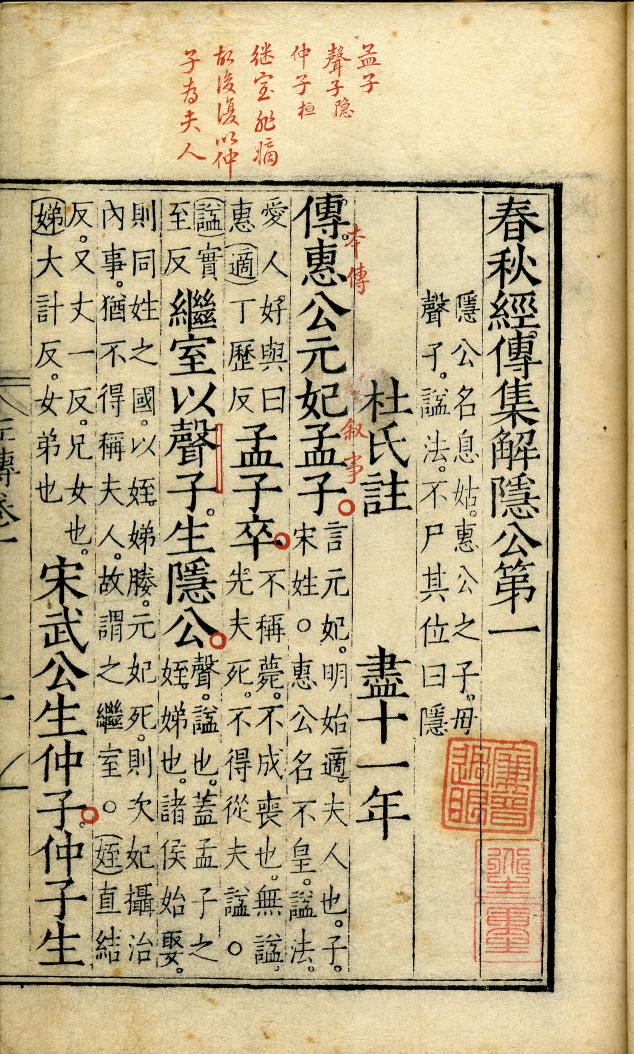 孟子
聲子隐
仲子桓
继室非嫡
故後復以仲
子為夫人
春秋經傳集解隱公第一
隱公名息姑。惠公之子。母
聲子。謚法。不尸其位曰隱
杜氏註 盡十一年
本傳 叙事
傳。惠公元妃孟子。
言元妃。明始適。夫人也。子。
宋姓。○惠公名不皇。謚法。
愛人好與曰
惠適丁歷反
孟子卒。
不稱薨。不成喪也。無謚。
先夫死。不得從夫謚。○
謚實
至反
繼室以聲子。生隱公。
聲。謚也。蓋孟子之
姪娣也。諸侯始娶。
則同姓之國。以姪娣媵。元妃死。則次妃攝治
內事。猶不得稱夫人。故謂之繼室○姪直結
反。又丈一反。兄女也。
娣大計反。女弟也
宋武公生仲子。仲子生
左傳卷一